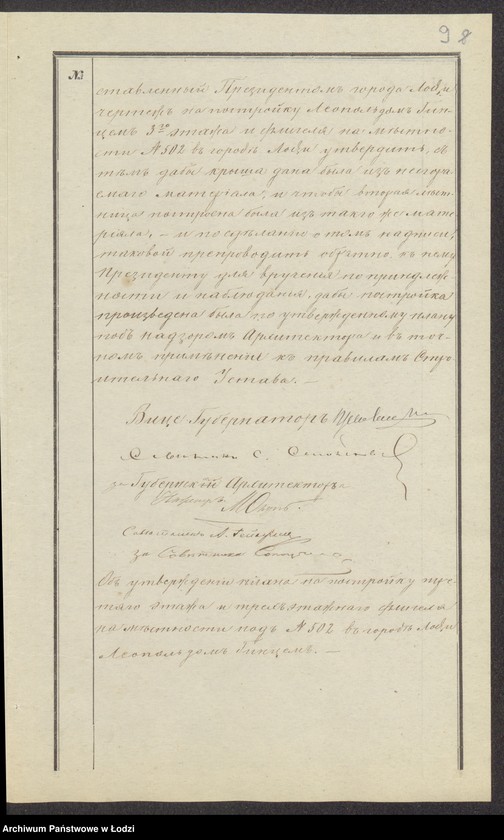 98
№
ставленный Президентомъ города Лодзи
чертежъ на постройку Леопольдомъ Гин-
цемъ 3го этажа и флигеля на мѣстно-
сти N 502 въ городѣ Лодзи утвердить, съ
тѣмъ дабы крыша дана была изъ несгора-
емаго матеріала, и чтобы вторая лѣст-
ница построена была изъ такого же мате-
ріала, – и по сдѣланіи о томъ надписи,
таковой препроводить обратно къ нему
Президенту для врученія по принадлеж-
ности и наблюденія, дабы постройка
произведена была по утвержденному плану
подъ надзоромъ Архитектора и въ точ-
номъ примѣненіи къ правиламъ Стро-
ительнаго Устава. –
Вице Губернаторъ
за Губернскій Архитекторъ
за Совѣтника
Объ утвержденіи плана на постройку
этажа и трехъэтажнаго флигеля
на мѣстности подъ N 502 въ городѣ Лодзи
Леопольдомъ Гинцемъ. –
Archiwum Państwowe w Łodzi